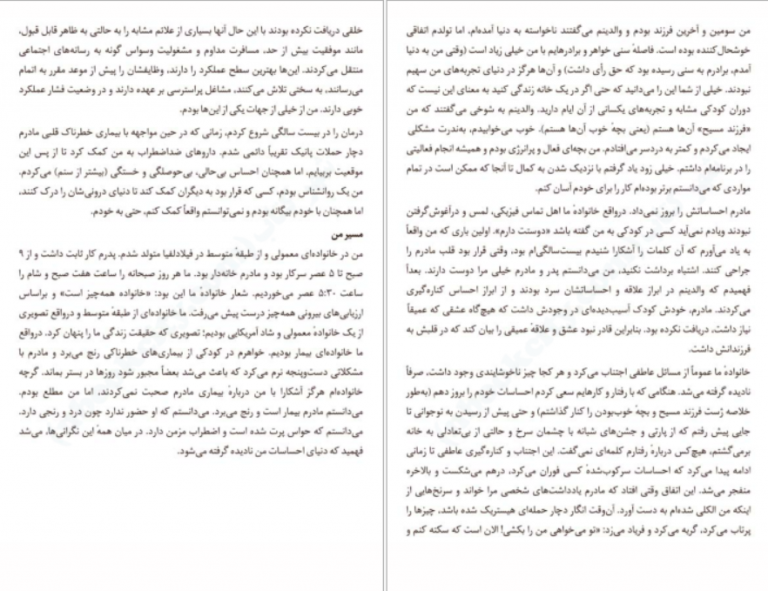 من سومین و آخرین فرزند بودم و والدینم می‌گفتند ناخواسته به دنیا آمده‌ام، اما تولدم اتفاقی
خوشحال‌کننده بوده است. فاصلهٔ سنی خواهر و برادرهایم با من خیلی زیاد است (وقتی من به دنیا
آمدم، برادرم به سنی رسیده بود که حق رأی داشت) و آن‌ها هرگز در دنیای تجربه‌های من سهیم
نبودند. خیلی از شما این را می‌دانید که حتی اگر در یک خانه زندگی کنید به معنای این نیست که
دوران کودکی مشابه و تجربه‌های یکسانی از آن ایام دارید. والدینم به شوخی می‌گفتند که من
«فرزند مسیح» آن‌ها هستم (یعنی بچهٔ خوب آن‌ها هستم). خوب می‌خوابیدم، به‌ندرت مشکلی
ایجاد می‌کردم و کمتر به دردسر می‌افتادم. من بچه‌ای فعال و پرانرژی بودم و همیشه انجام فعالیتی
را در برنامه‌ام داشتم. خیلی زود یاد گرفتم با نزدیک شدن به کمال تا آنجا که ممکن است در تمام
مواردی که می‌توانستم برتر بوده‌ام کار را برای خودم آسان کنم.
مادرم احساساتش را بروز نمی‌داد. درواقع خانوادهٔ ما اهل تماس فیزیکی، لمس و درآغوش‌گرفتن
نبودند و یادم نمی‌آید کسی در کودکی به من گفته باشد «دوستت دارم». اولین باری که من واقعاً
به یاد می‌آورم که آن کلمات را آشکارا شنیدم بیست‌سالگی‌ام بود، وقتی قرار بود قلب مادرم را
جراحی کنند. اشتباه برداشت نکنید، من می‌دانستم پدر و مادرم خیلی مرا دوست دارند. بعداً
فهمیدم که والدینم در ابراز علاقه و احساساتشان سرد بودند و از ابراز احساس کناره‌گیری
می‌کردند. مادرم، خودش کودک آسیب‌دیده‌ای در وجودش داشت که هیچ‌گاه عشقی که عمیقاً
نیاز داشت، دریافت نکرده بود. بنابراین قادر نبود عشق و علاقهٔ عمیقی را بیان کند که در قلبش به
فرزندانش داشت.
خانوادهٔ ما عموماً از مسائل عاطفی اجتناب می‌کرد و هر کجا چیز ناخوشایندی وجود داشت، صرفاً
نادیده گرفته می‌شد. هنگامی که با رفتار و کارهایم سعی کردم احساسات خودم را بروز دهم (به‌طور
خلاصه ژست فرزند مسیح و بچهٔ خوب‌بودن را کنار گذاشتم) و حتی پیش از رسیدن به نوجوانی تا
جایی پیش رفتم که از پارتی و جشن‌های شبانه با چشمان سرخ و حالتی از بی‌تعادلی به خانه
برمی‌گشتم، هیچ‌کس دربارهٔ رفتارم کلمه‌ای نمی‌گفت. این اجتناب و کناره‌گیری عاطفی تا زمانی
ادامه پیدا می‌کرد که احساسات سرکوب‌شدهٔ کسی فوران می‌کرد، درهم می‌شکست و بالاخره
منفجر می‌شد. این اتفاق وقتی افتاد که مادرم یادداشت‌های شخصی مرا خواند و سرنخ‌هایی از
اینکه من الکلی شده‌ام به دست آورد. آن‌وقت انگار دچار حمله‌ای هیستریک شده باشد، چیزها را
پرتاب می‌کرد، گریه می‌کرد و فریاد می‌زد: «تو می‌خواهی من را بکشی! الان است که سکته کنم و
خلقی دریافت نکرده بودند با این حال آنها بسیاری از علائم مشابه را به حالتی به ظاهر قابل قبول،
مانند موفقیت بیش از حد، مسافرت مداوم و مشغولیت وسواس گونه به رسانه‌های اجتماعی
منتقل می‌کردند. این‌ها بهترین سطح عملکرد را دارند، وظایفشان را پیش از موعد مقرر به اتمام
می‌رسانند، به سختی تلاش می‌کنند، مشاغل پراسترسی بر عهده دارند و در وضعیت فشار عملکرد
خوبی دارند. من از خیلی از جهات یکی از این‌ها بودم.
درمان را در بیست سالگی شروع کردم، زمانی که در حین مواجهه با بیماری خطرناک قلبی مادرم
دچار حملات پانیک تقریباً دائمی شدم. داروهای ضداضطراب به من کمک کرد تا از پس این
موقعیت بربیایم. اما همچنان احساس بی‌حالی، بی‌حوصلگی و خستگی (بیشتر از سنم) می‌کردم.
من یک روانشناس بودم، کسی که قرار بود به دیگران کمک کند تا دنیای درونی‌شان را درک کنند،
اما همچنان با خودم بیگانه بودم و نمی‌توانستم واقعاً کمک کنم، حتی به خودم.
مسیر من
من در خانواده‌ای معمولی و از طبقهٔ متوسط در فیلادلفیا متولد شدم. پدرم کار ثابت داشت و از ۹
صبح تا ۵ عصر سرکار بود و مادرم خانه‌دار بود. ما هر روز صبحانه را ساعت هفت صبح و شام را
ساعت ۵:۳۰ عصر می‌خوردیم. شعار خانوادهٔ ما این بود: «خانواده همه‌چیز است» و براساس
ارزیابی‌های بیرونی همه‌چیز درست پیش می‌رفت. ما خانواده‌ای از طبقهٔ متوسط و درواقع تصویری
از یک خانوادهٔ معمولی و شاد آمریکایی بودیم؛ تصویری که حقیقت زندگی ما را پنهان کرد. درواقع
ما خانواده‌ای بیمار بودیم. خواهرم در کودکی از بیماری‌های خطرناکی رنج می‌برد و مادرم با
مشکلاتی دست‌وپنجه نرم می‌کرد که باعث می‌شد بعضاً مجبور شود روزها در بستر بماند. گرچه
خانواده‌ام هرگز آشکارا با من دربارهٔ بیماری مادرم صحبت نمی‌کردند، اما من مطلع بودم.
می‌دانستم مادرم بیمار است و رنج می‌برد. می‌دانستم که او حضور ندارد چون درد و رنجی دارد.
می‌دانستم که حواس پرت شده است و اضطراب مزمن دارد. در میان همهٔ این نگرانی‌ها، می‌شد
فهمید که دنیای احساسات من نادیده گرفته می‌شود.